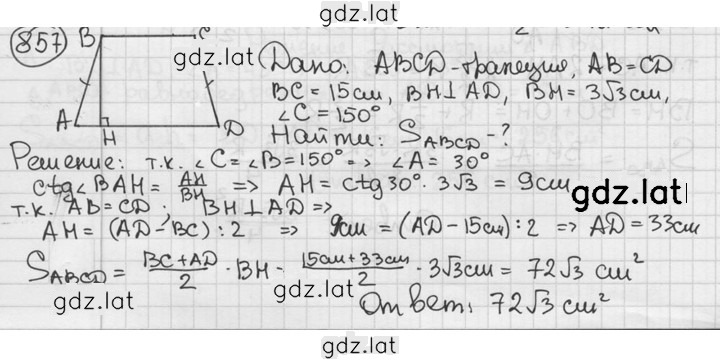 gdz.latl
857 B C
gdz.latl
A H D
Дано: ABCD-трапеция, AB=CD
BC=15см, BH⊥AD, BH=3√3см,
∠C=150°
Найти: S_ABCD-?
Решение: т.к. ∠C=∠B=150°=> ∠A=30°
ctg∠BAH=AH/BH => AH=ctg30°·3√3=9см
gdz.latl
т.к. AB=CD. BH⊥AD =>
AH=(AD-BC):2 => 9см=(AD-15см):2 => AD=33см
S_ABCD=(BC+AD)/2·BH=(15см+33см)/2·3√3см=72√3 см²
gdz.latl
gdz.latl
Ответ: 72√3 см²
gdz.latl